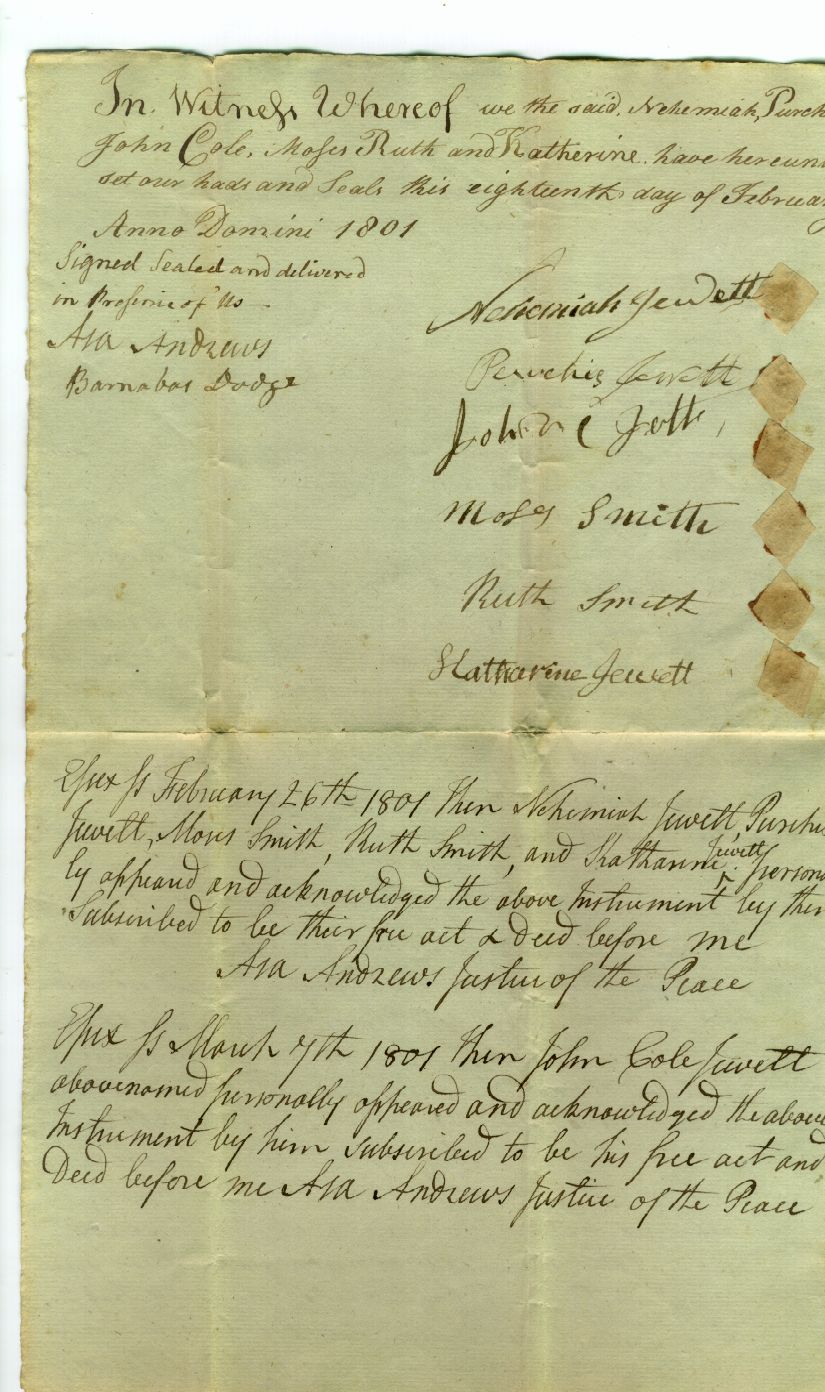 In Witness Whereof we the said, Nehemiah, Purch
John Cole, Moses Ruth and Katherine have hereun
set our hads and Seals this eighteenth day of Februay
Anno Domini 1801
Signed Sealed and delivered
in Presence of Us
Asa Andrews
Barnabas Dodge
Nehemiah Jewett
Jewett
John C Jett
Moses Smith
Ruth Smith
Katharine Jewett
Essex Ss February 26th 1801 then Nehemiah Jewett, Purchis
Jewett, Moses Smith, Ruth Smith, and Katharine Jewett persona
ly appeared and acknowledged the above Instrument by them
Subscribed to be their free act & Deed before me
Asa Andrews Justice of the Peace
Essex Ss March 7th 1801 then John Cole Jewett
abovenamed personally appeared and acknowledged the above
Instrument by him subscribed to be his free act and
Deed before me Asa Andrews Justice of the Peace